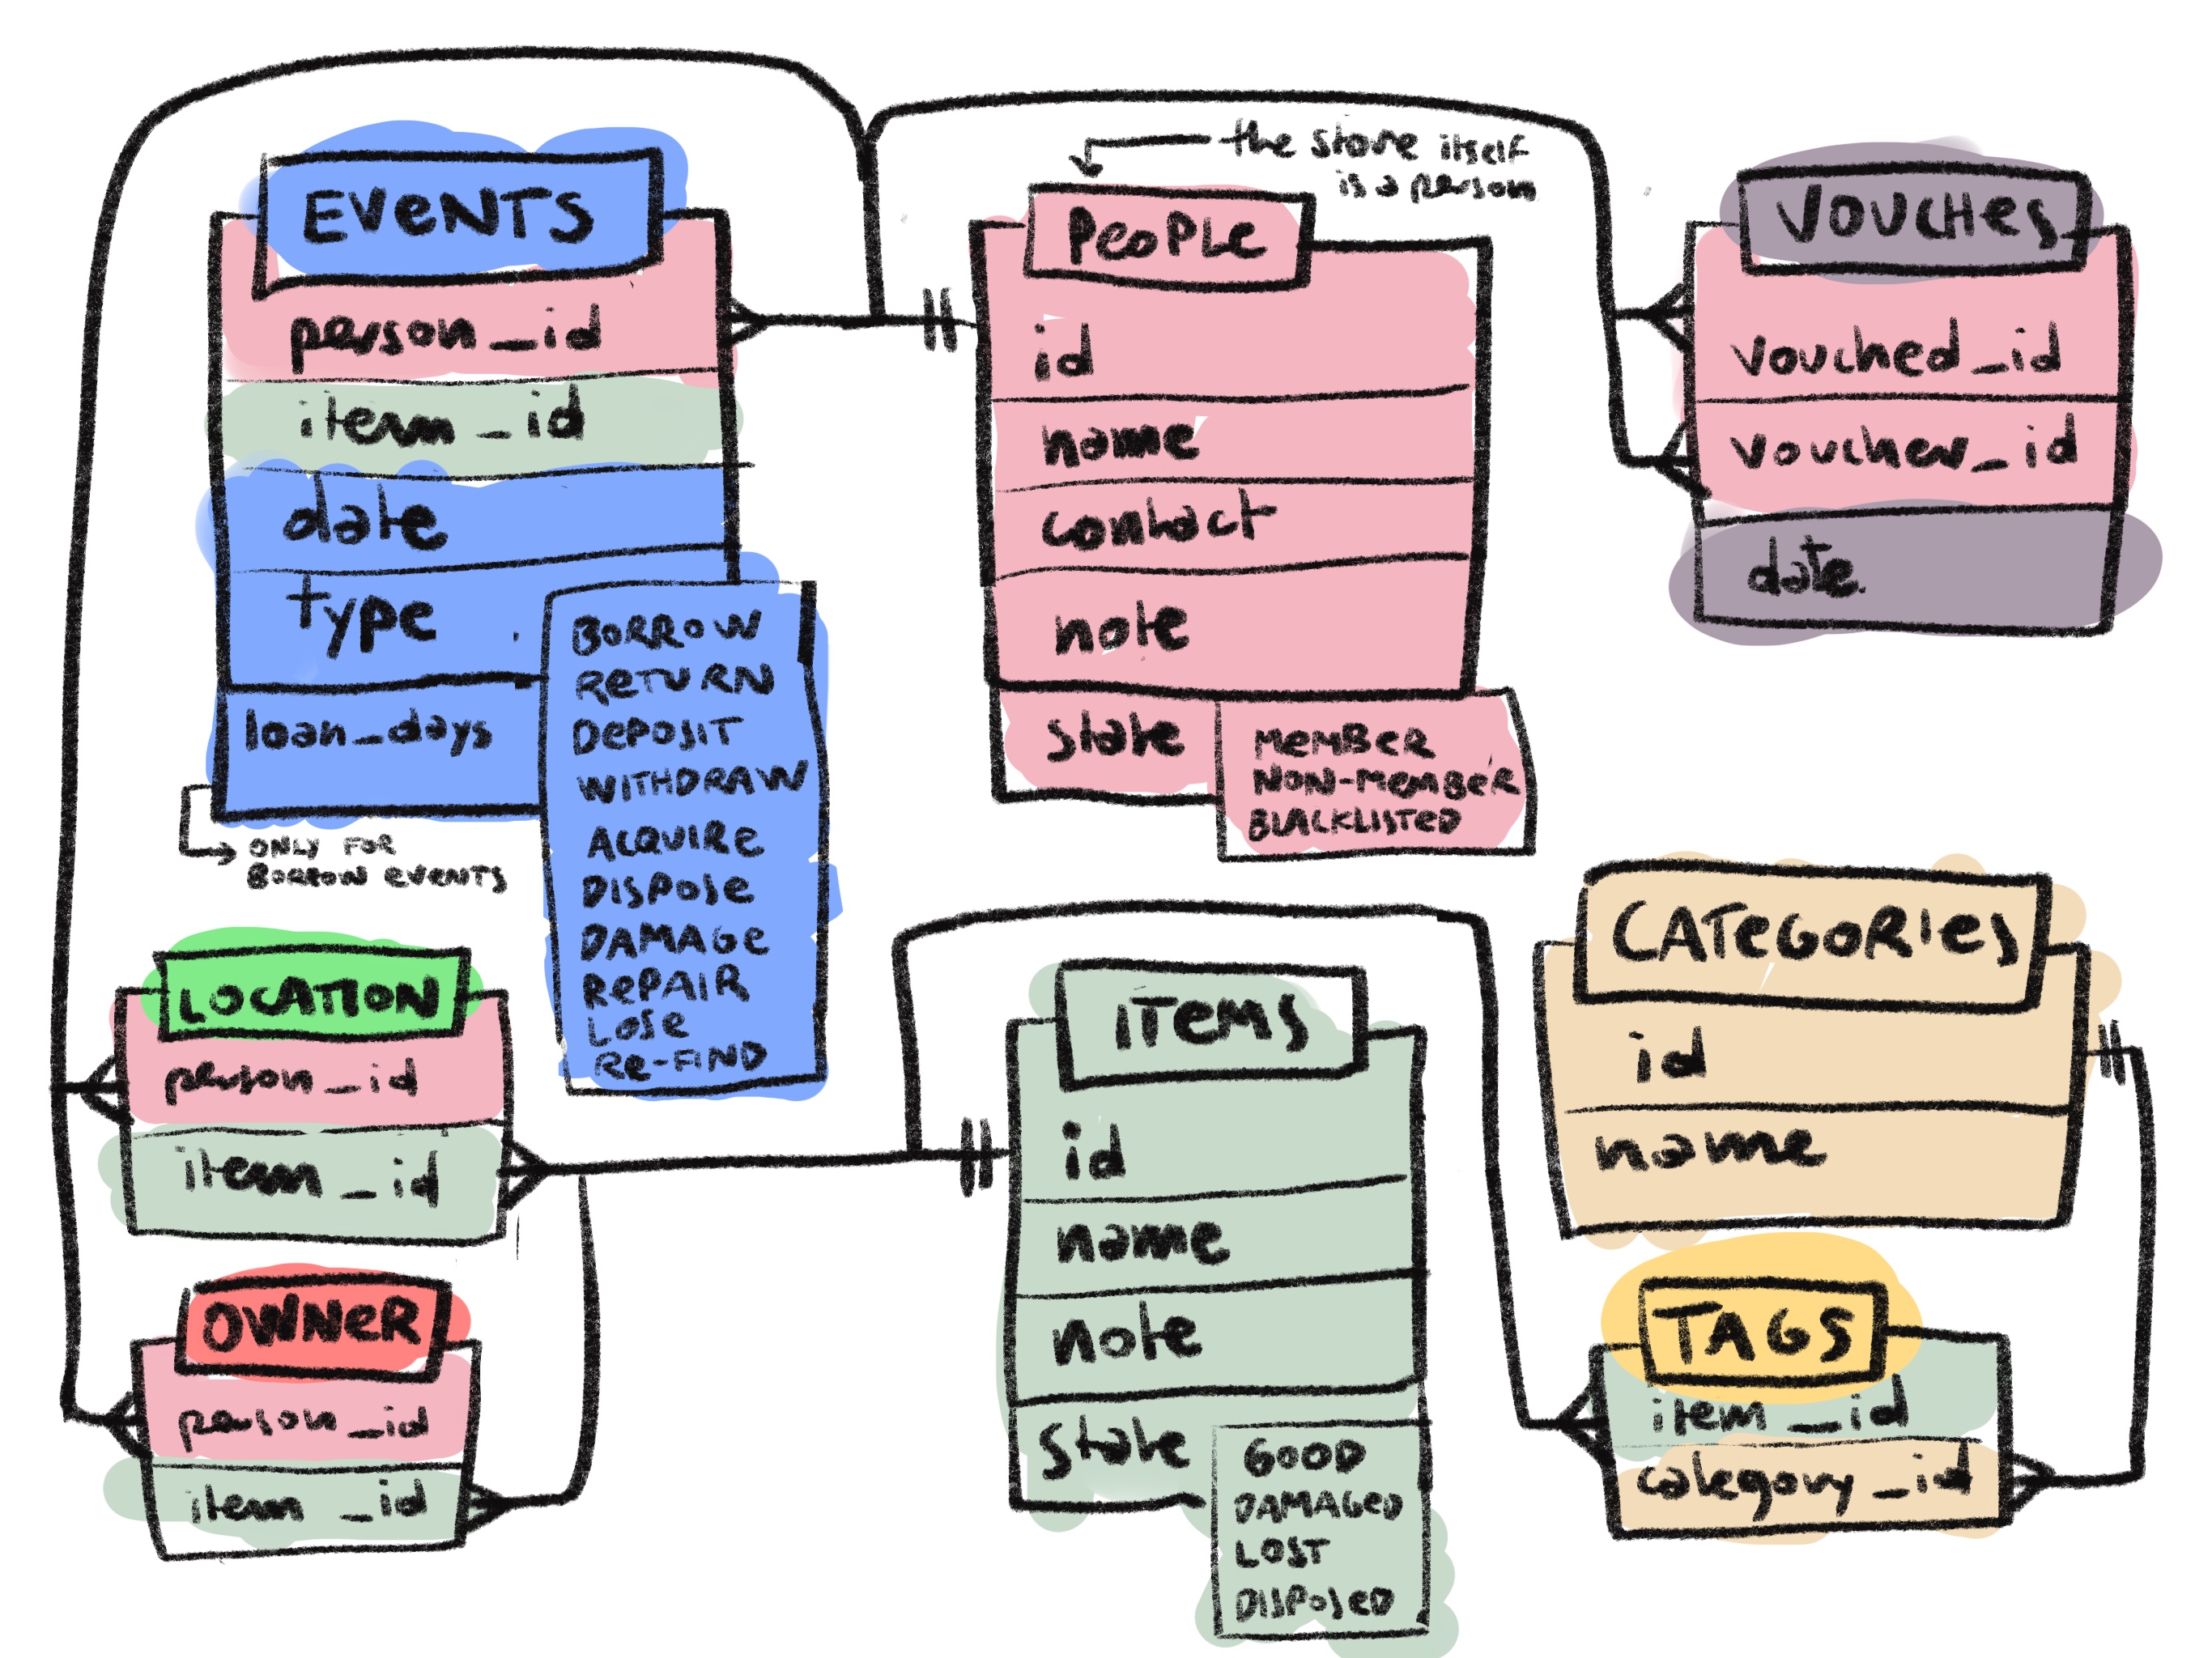 EVENTS
person_id
item_id
date
type
BORROW
RETURN
DEPOSIT
WITHDRAW
ACQUIRE
DISPOSE
DAMAGE
REPAIR
LOSE
RE-FIND
loan_days
ONLY FOR
BORROW EVENTS
the store itself
is a person
PEOPLE
id
name
contact
note
state
MEMBER
NON-MEMBER
BLACKLISTED
VOUCHES
vouched_id
voucher_id
date
LOCATION
person_id
item_id
OWNER
person_id
item_id
ITEMS
id
name
note
state
GOOD
DAMAGED
LOST
DISPOSED
CATEGORIES
id
name
TAGS
item_id
category_id